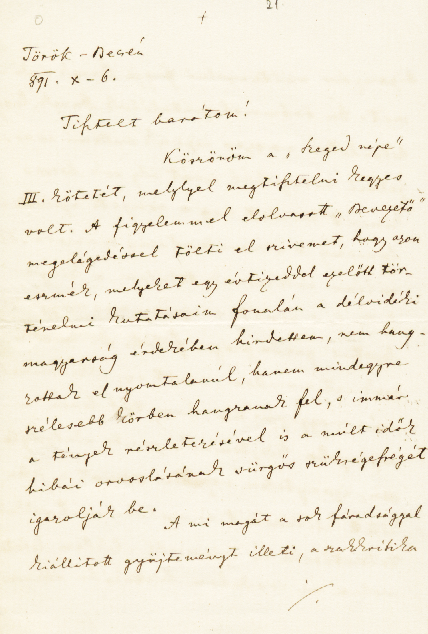 21.
Török-Becsén
891. X-6.
Tisztelt barátom!
Köszönöm a „Szeged népe"
III. kötetét, melylyel megtisztelni kegyes
volt. A figyelemmel elolvasott „Bevezető"
megelégedéssel tölti el szivemet, hogy azon
eszmék, melyeket egy évtizeddel ezelőtt tör-
ténelmi kutatásaim fonalán a délvidéki
magyarság érdekében hirdettem, nem hang-
zottak el nyomtalanúl, hanem mindegyre
szélesebb körben hangzanak fel, s immár
a tények részletezésével is a múlt idők
hibái orvoslásának sürgős szükségességét
igazolják be.
A mi magát a sok fáradsággal
kiállitott gyűjteményt illeti, a szakkritika
./.